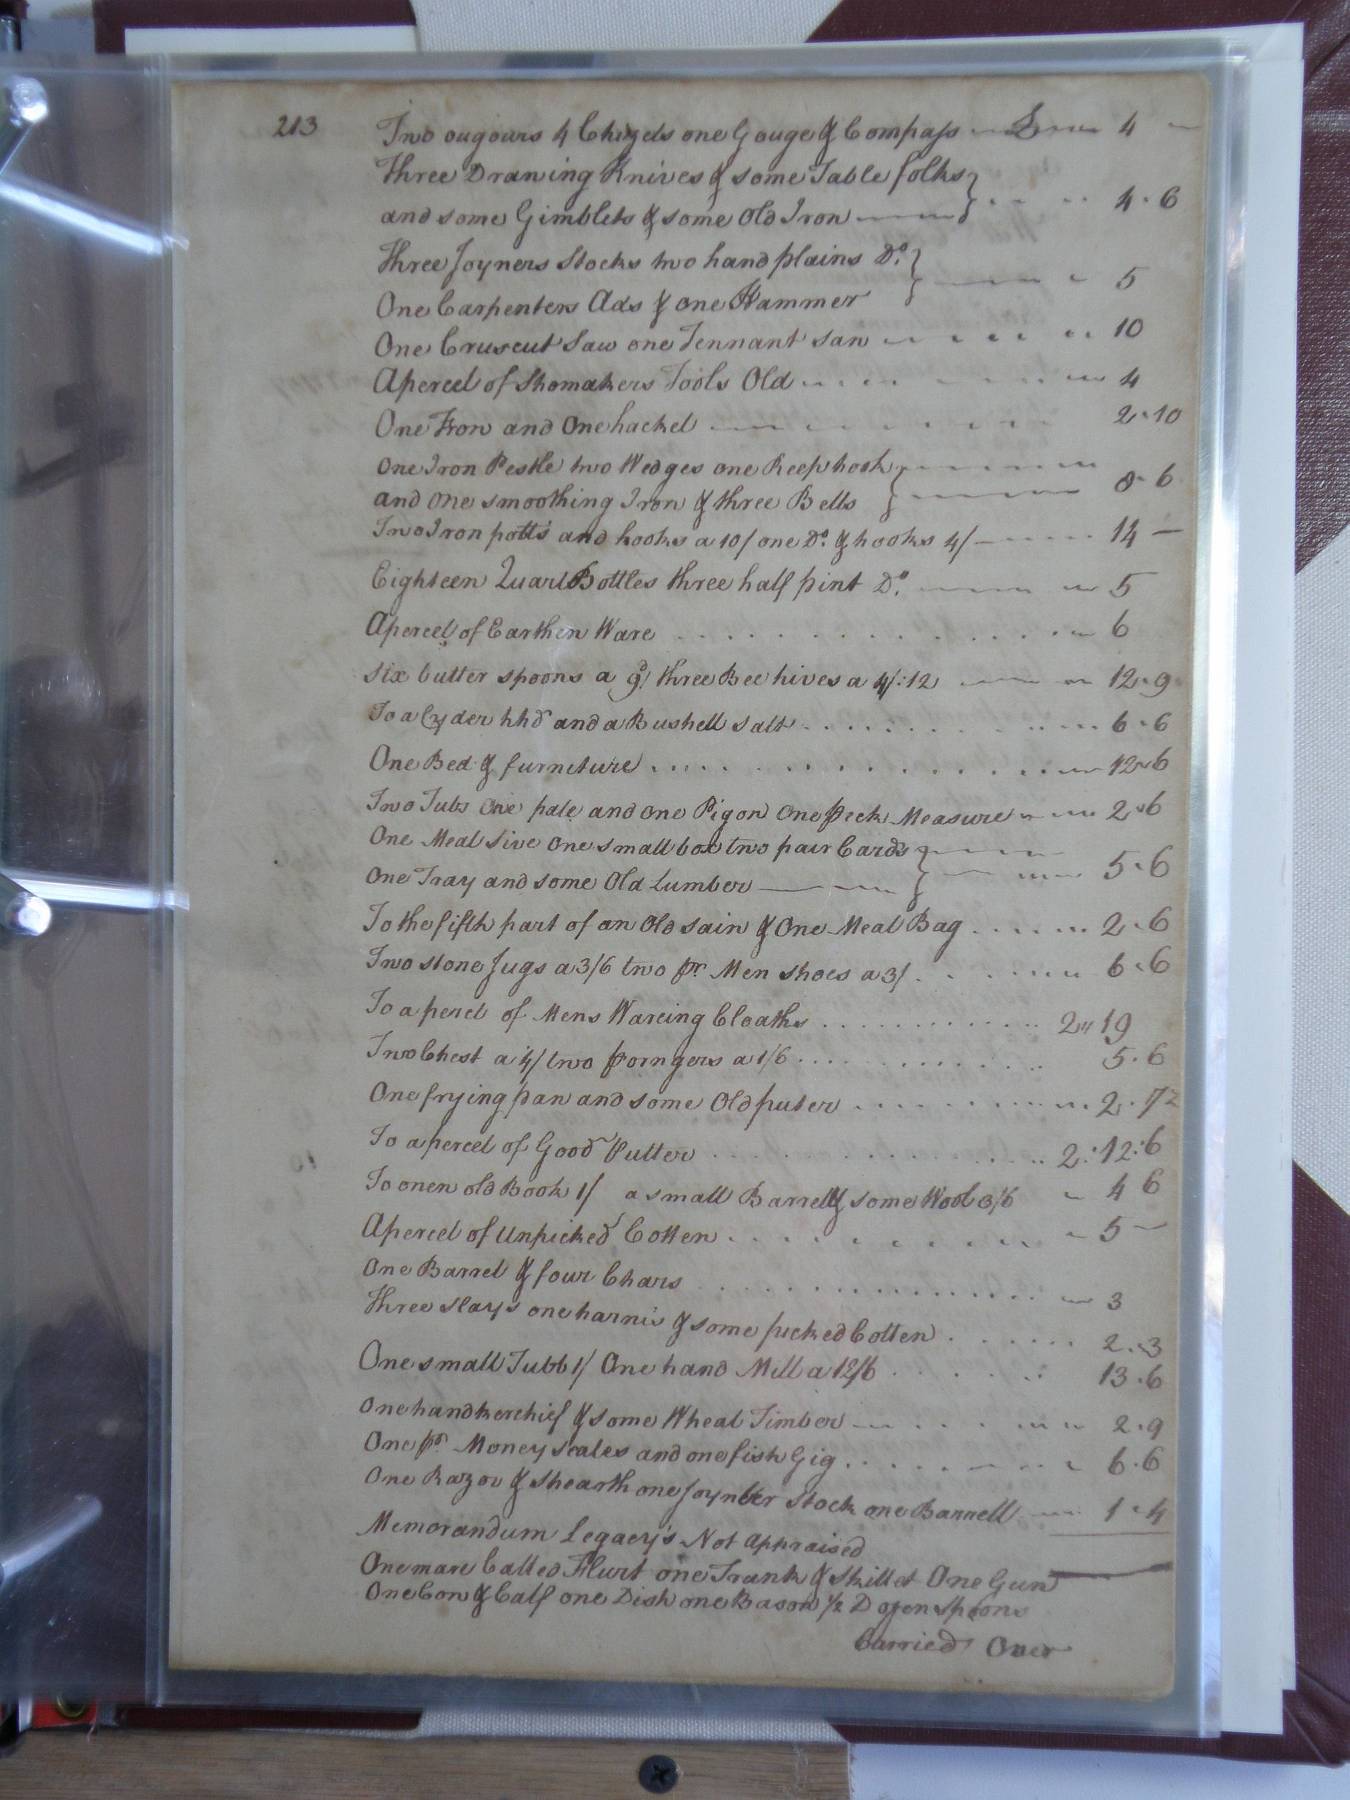 213
Two ougours 4 Chizels one Gouge & Compass £ 4 —
Three Drawing Knives & some Table folks
and some Gimblets & some Old Iron 4·6
Three Joyners Stocks two hand plains Do.
One Carpenters Ads & one Hammer 5
One Cruscut Saw one Tennant saw 10
A percel of Shomakers Tools Old 4
One Frow and One hackel 2·10
One Iron Pestle two Wedges one Reep hook
and one smoothing Iron & three Bells 8·6
Two Iron potts and hooks a 10/ one Do. & hooks 4/ 14 —
Eighteen Quart Bottles three half pint Do. 5
A percel of Earthen Ware 6
Six butter spoons a 9d/ three Bee hives a 4/:12 12·9
To a Cyder hhd and a Bushell salt 6·6
One Bed & furniture 12·6
Two Tubs One pale and one Pigon One Peck Measure 2·6
One Meal Sive One small box two pair Cards
One Tray and some Old Lumber 5·6
To the fifth part of an Old sain & One Meal Bag 2·6
Two stone Jugs a 3/6 two pr. Men shoes a 3/ 6·6
To a percl of Mens Wareing Cloaths 2"19
Two Chest a 4/ two Porngers a 1/6 5·6
One frying pan and some Old puter 2·7½
To a percel of Good Putter 2:12:6
To onen old Book 1/ a small Barrell & some Wool 3/6 4 6
A percel of Unpicked Cotten 5 —
One Barrel & four Chars 3
Three Slays one harnis & some picked Cotten 2·3
One small Tubb 1/ One hand Mill a 12/6 13·6
One handkerchief & some Wheal Timber 2·9
One pr. Money scales and one fish Gig 6·6
One Razor & Shearth one Joynter Stock one Barrell 1·4
Memorandum Legacy's Not Appraised
One mare Called Flurt one Trunk & Skillet One Gun
One Cow & Calf one Dish one Bason ½ Dozen Spoons
Carried Over